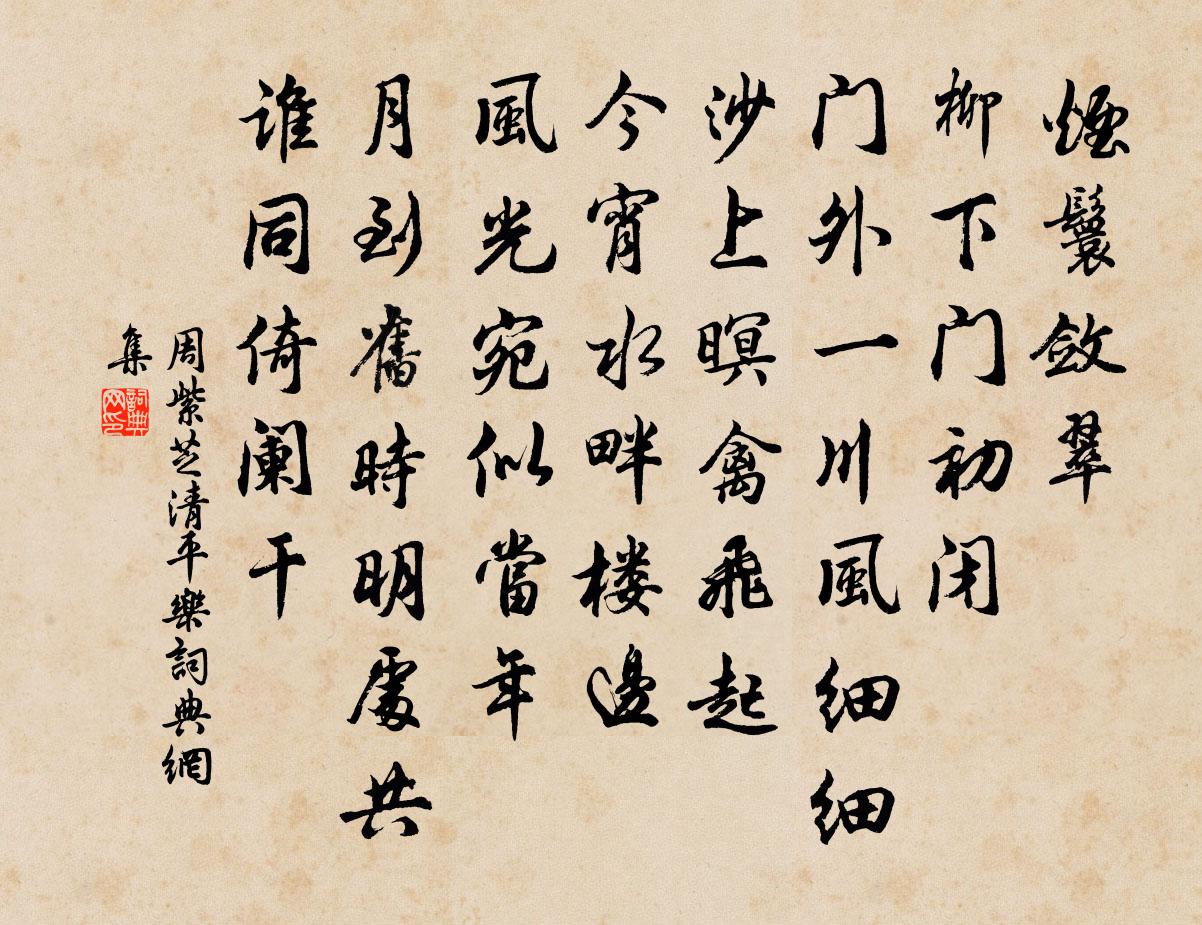 煙鬟斂翠
柳下门初闭
门外一川風细细
沙上暝禽飛起
今宵水畔楼邊
風光宛似當年
月到舊時明處共
谁同倚阑干
周紫芝清平樂詞典網
集
詞典网印